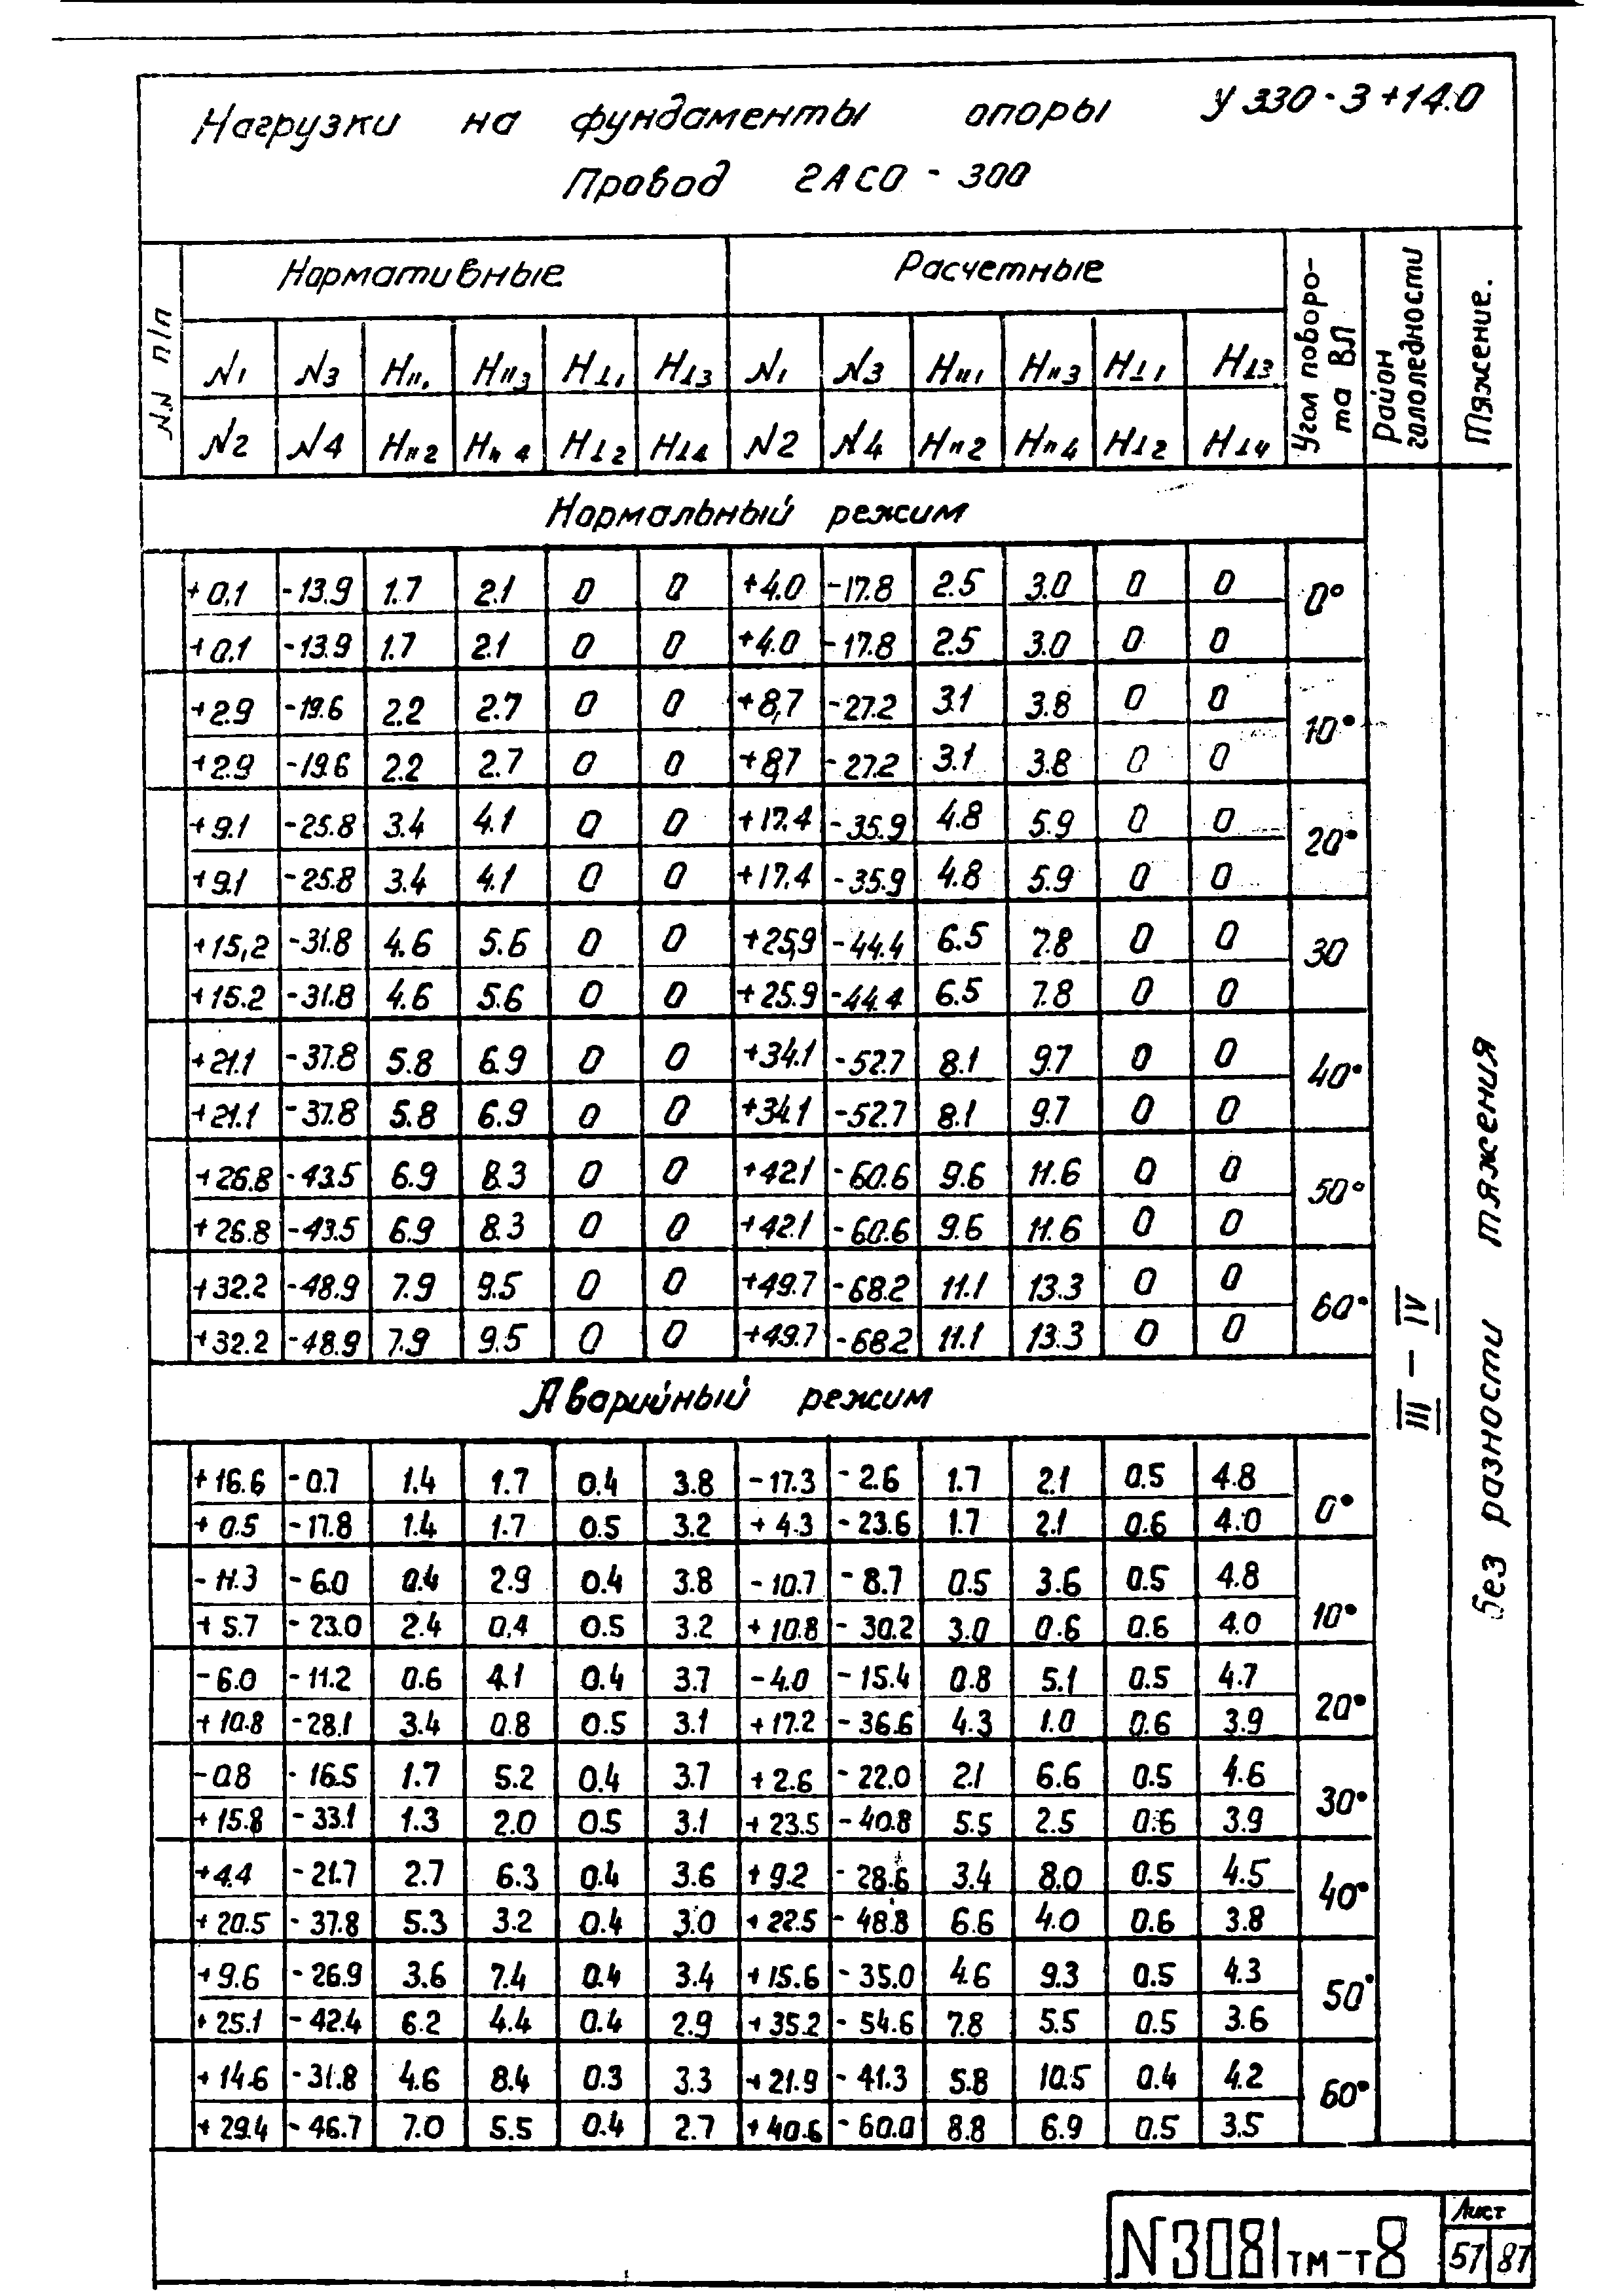 Нагрузки на фундаменты опоры У 330-3+14.0
Провод 2АСО - 300
NN п/п Нормативные Расчетные Угол поворо-та ВЛ Район гололедности Тяжение.
N1 N3 Hıı1 Hıı3 H⊥1 H⊥3 N1 N3 Hıı1 Hıı3 H⊥1 H⊥3
N2 N4 Hıı2 Hıı4 H⊥2 H⊥4 N2 N4 Hıı2 Hıı4 H⊥2 H⊥4
Нормальный режим
+0.1 -13.9 1.7 2.1 0 0 +4.0 -17.8 2.5 3.0 0 0 0°
+0.1 -13.9 1.7 2.1 0 0 +4.0 -17.8 2.5 3.0 0 0
+2.9 -19.6 2.2 2.7 0 0 +8,7 -27.2 3.1 3.8 0 0 10°
+2.9 -19.6 2.2 2.7 0 0 +8,7 -27.2 3.1 3.8 0 0
+9.1 -25.8 3.4 4.1 0 0 +17.4 -35.9 4.8 5.9 0 0 20°
+9.1 -25.8 3.4 4.1 0 0 +17.4 -35.9 4.8 5.9 0 0
+15,2 -31.8 4.6 5.6 0 0 +25,9 -44.4 6.5 7.8 0 0 30
+15.2 -31.8 4.6 5.6 0 0 +25.9 -44.4 6.5 7.8 0 0
+21.1 -37.8 5.8 6.9 0 0 +34.1 -52.7 8.1 9.7 0 0 40°
+21.1 -37.8 5.8 6.9 0 0 +34.1 -52.7 8.1 9.7 0 0
+26.8 -43.5 6.9 8.3 0 0 +42.1 -60.6 9.6 11.6 0 0 50°
+26.8 -43.5 6.9 8.3 0 0 +42.1 -60.6 9.6 11.6 0 0
+32.2 -48.9 7.9 9.5 0 0 +49.7 -68.2 11.1 13.3 0 0 60°
+32.2 -48.9 7.9 9.5 0 0 +49.7 -68.2 11.1 13.3 0 0
Аварийный режим
+16.6 -0.7 1.4 1.7 0.4 3.8 -17.3 -2.6 1.7 2.1 0.5 4.8 0°
+0.5 -17.8 1.4 1.7 0.5 3.2 +4.3 -23.6 1.7 2.1 0.6 4.0
-11.3 -6.0 0.4 2.9 0.4 3.8 -10.7 -8.7 0.5 3.6 0.5 4.8 10°
+5.7 -23.0 2.4 0.4 0.5 3.2 +10.8 -30.2 3.0 0.6 0.6 4.0
-6.0 -11.2 0.6 4.1 0.4 3.7 -4.0 -15.4 0.8 5.1 0.5 4.7 20°
+10.8 -28.1 3.4 0.8 0.5 3.1 +17.2 -36.6 4.3 1.0 0.6 3.9
-0.8 -16.5 1.7 5.2 0.4 3.7 +2.6 -22.0 2.1 6.6 0.5 4.6 30°
+15.8 -33.1 1.3 2.0 0.5 3.1 +23.5 -40.8 5.5 2.5 0.6 3.9
+4.4 -21.7 2.7 6.3 0.4 3.6 +9.2 -28.6 3.4 8.0 0.5 4.5 40°
+20.5 -37.8 5.3 3.2 0.4 3.0 +22.5 -48.8 6.6 4.0 0.6 3.8
+9.6 -26.9 3.6 7.4 0.4 3.4 +15.6 -35.0 4.6 9.3 0.5 4.3 50°
+25.1 -42.4 6.2 4.4 0.4 2.9 +35.2 -54.6 7.8 5.5 0.5 3.6
+14.6 -31.8 4.6 8.4 0.3 3.3 +21.9 -41.3 5.8 10.5 0.4 4.2 60°
+29.4 -46.7 7.0 5.5 0.4 2.7 +40.6 -60.0 8.8 6.9 0.5 3.5
III - IV
без разности тяжения
N3081тм-т8
Лист
57 87